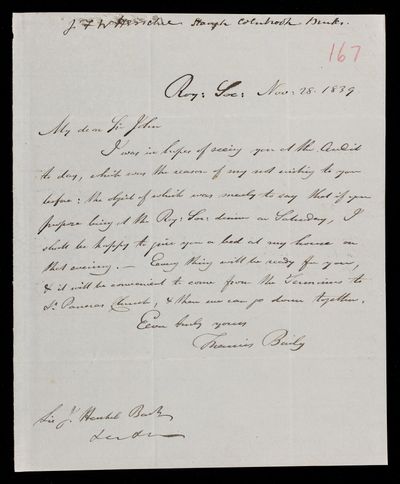 J F W Herschel Slough Colnbrook Bucks.
167
Roy: Soc: Nov: 28. 1839
My dear Sir John
I was in hopes of seeing you at the Audit
to day, which was the reason of my not writing to you
before: the object of which was merely to say that if you
propose being at the Roy: Soc: dinner on Saturday, I
shall be happy to give you a bed at my house on
that evening. — Every thing will be ready for you,
& it will be convenient to come from the to
St. Pancras Church, & then we can go down together.
Ever truly yours
Francis Baily
Sir J. Herschel Bart